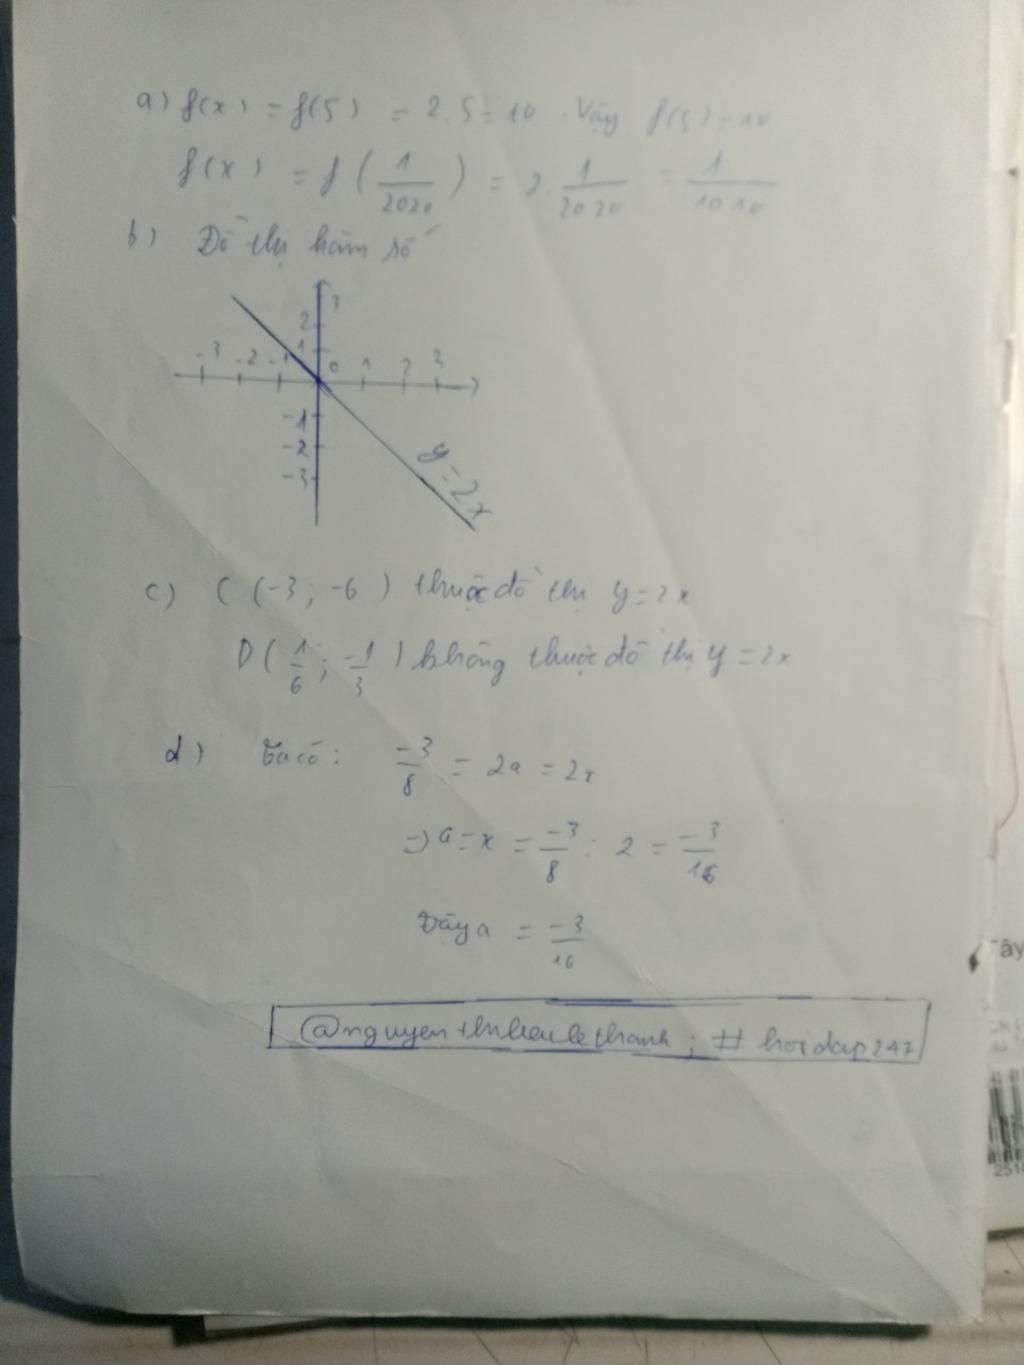 a) f(x) = f(5) = 2.5 = 10 . Vậy f(5) = 10
f(x) = f ( 1/2020 ) = 2. 1/2020 = 1/1010
b) Đồ thị hàm số
3
2
1
-3 -2 -1 0 1 2 3
-1
-2
-3
y = 2x
c) C (-3; -6) thuộc đồ thị y = 2x
D ( 1/6 ; -1/3 ) không thuộc đồ thị y = 2x
d) Ta có: -3/8 = 2a = 2x
=> a = x = -3/8 : 2 = -3/16
Vậy a = -3/16
; # hoidap247
Tây